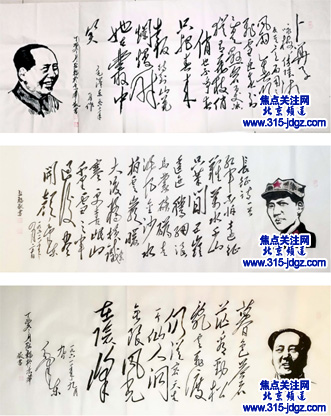 卜算子
咏梅
风雨送春归
飞雪迎春到
已是悬崖百丈冰
犹有花枝俏
俏也不争春
只把春来
报待到山花
烂漫时
她在丛中
笑
焦点关注网
北京频道
www.315-jdgz.com
长征诗一首
红军不怕远征
难万水千山
只等闲五岭
逶迤腾细浪
乌蒙磅礴走
泥丸金沙水
拍云崖暖
大渡桥横铁索
寒更喜岷山
千里雪三军
过后尽
开颜
毛泽东
焦点关注网
北京频道
www.315-jdgz.com
暮色苍
茫看劲松
乱云飞渡
仍从容天生
一个仙人洞
无限风光
在险峰
一九六一年九月
九日
毛泽东
焦点关注网
北京频道
www.315-jdgz.com